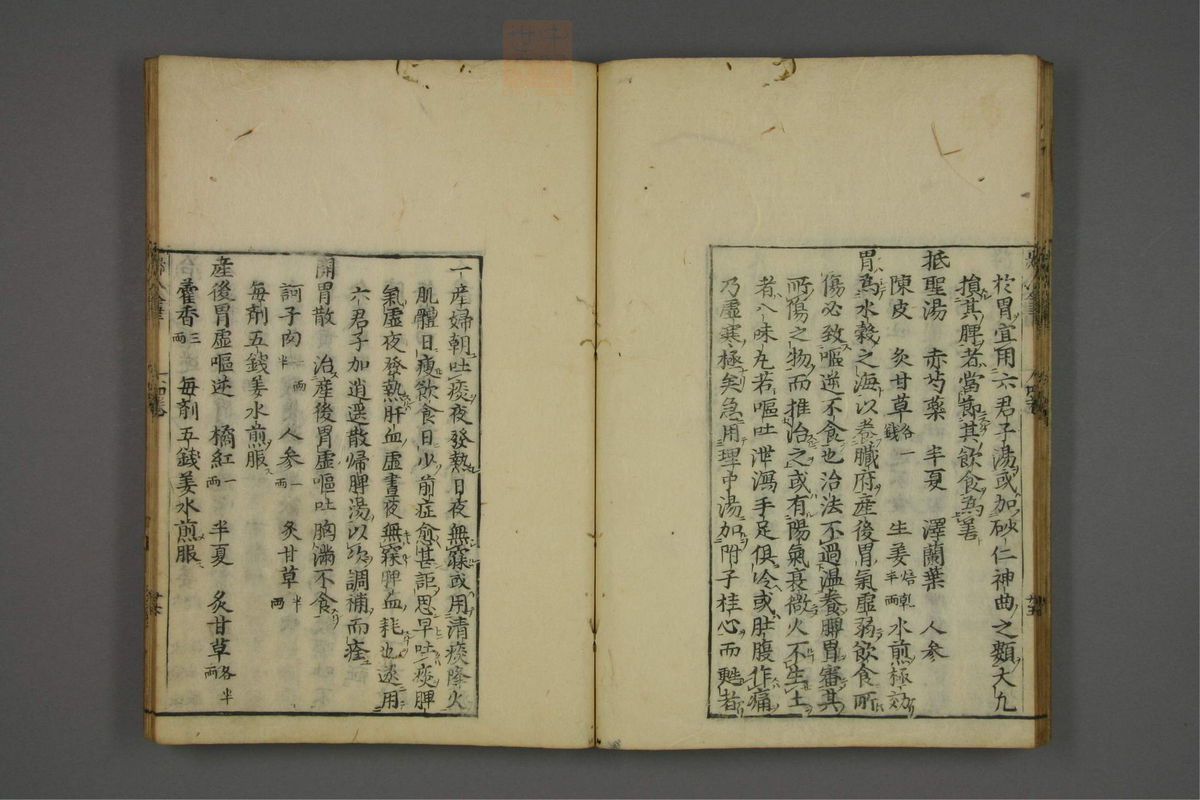 於胃宜用六君子湯或加砂仁神曲之類大凡
損其脾者當節其飲食爲善
抵聖湯　赤芍藥　半夏　澤蘭葉　人參
陳皮　炙甘草各一錢　生姜焙乾半兩　水煎極効
胃爲水穀之海以養臟府産後胃氣虛弱飲食所
傷必致嘔逆不食也治法不過温養脾胃審其
所傷之物而推治之或有陽氣衰微火不生土
者八味丸若嘔吐泄瀉手足俱冷或肚腹作痛
乃虛寒極矣急用理中湯加附子桂心而甦者
一産婦朝吐痰夜發熱日夜無寐或用清痰降火
肌體日瘦飲食日少前症愈甚詎思早吐痰脾
氣虛夜發熱肝血虛晝夜無寐脾血耗也遂用
六君子加逍遥散歸脾湯以次調補而痊
開胃散　治産後胃虛嘔吐胸滿不食
訶子肉一兩半　人參一兩　炙甘草半兩
毎劑五錢姜水煎服
産後胃虛嘔逆　橘紅一兩　半夏　炙甘草各半兩
藿香三兩　毎劑五錢姜水煎服